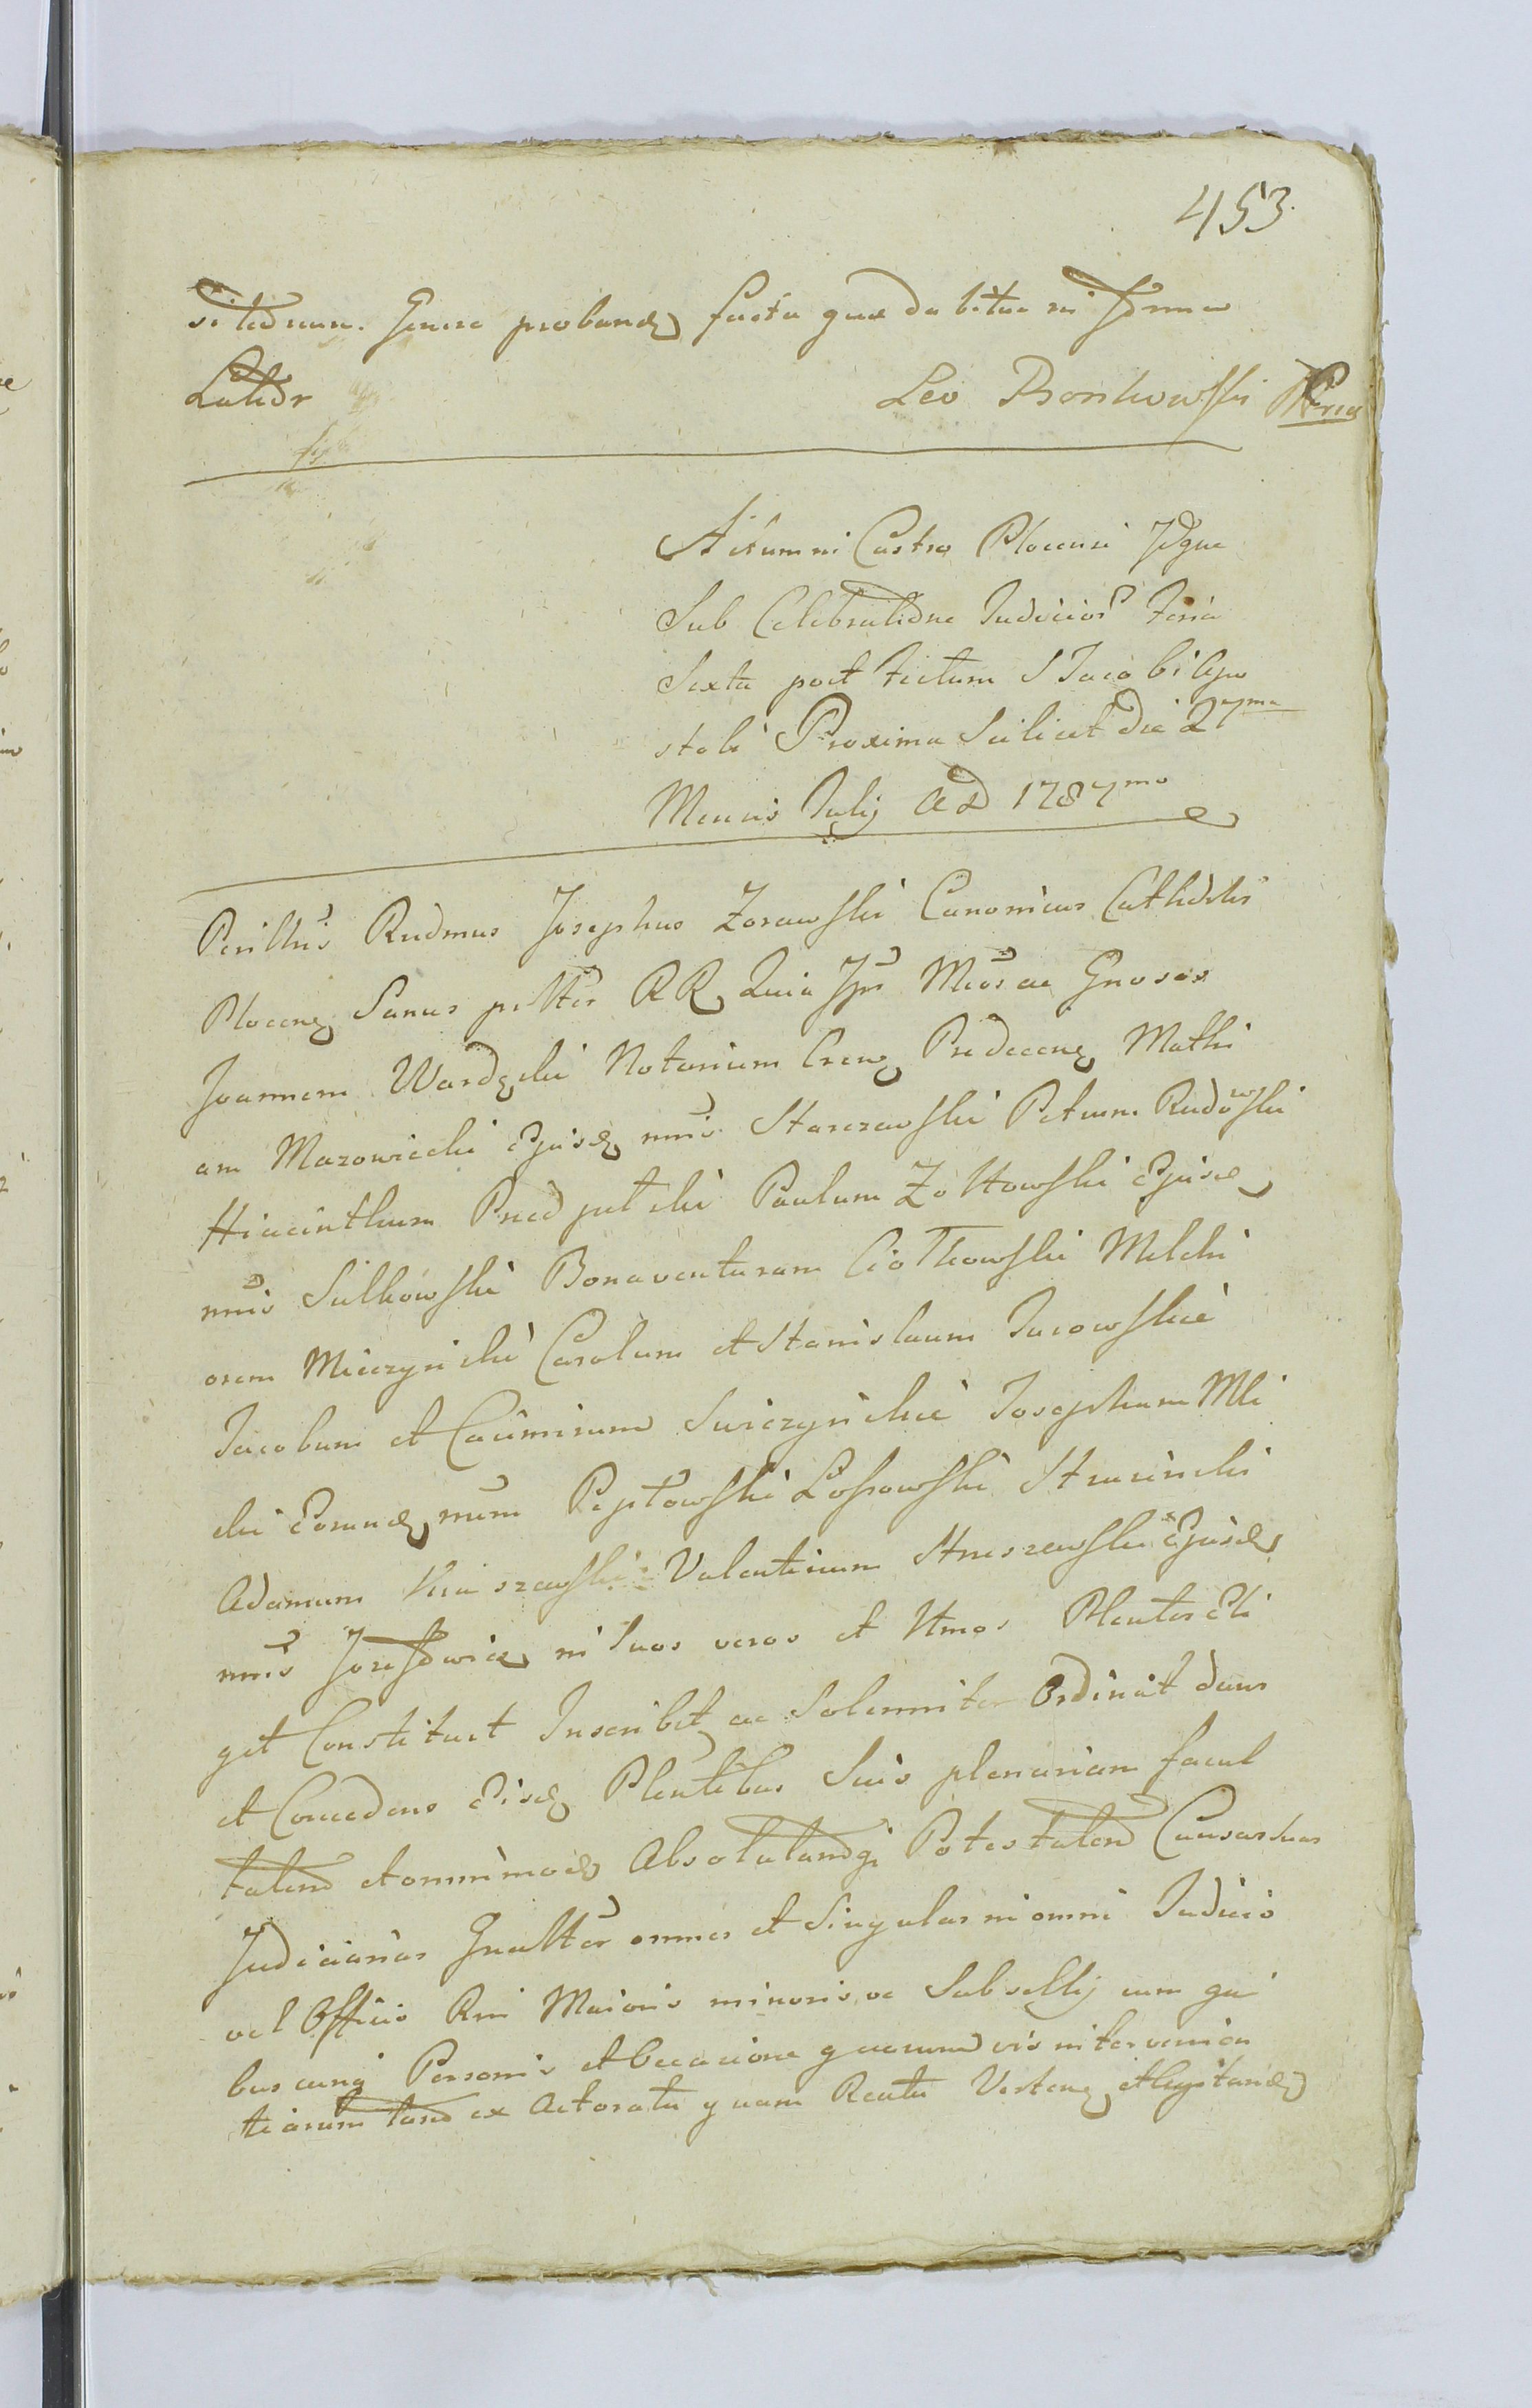 453.
Genere proband facta quae dabitur in Forma
Latiori
Leo Bonkowski
Actum in Castro Plocensi Idque
Sub Celebratione Judicior Feria
Sexta post Festum S Jacobi Apo
stoli Proxima Scilicet die 27ma
Mensis Julij AD 1787mo
Perillris Rndmus Josephus Zorawski Canonicus Cathdlis
Plocens Sanus RR Quia Ipse Mcos ac Gnosos
Joannem Wardzki Notarium Predecens Mathi
am Mazowiecki Ejusd nnis Starczewski Petrum Rudowski
Hiacinthum Paulum Zołtowski Ejusd
nnis Sulkowski Bonaventuram Ciołkowski Melchi
orem Mieczynski Carolum et Stanislaum Jurowskie
Jacobum et Casimirum Swiczynskie Josephum Mli
cki Eorund nnum Pepłowski Lossowski Strusinski
Adamum Valentinum Ejusd
nnis in Suos veros et Ltmos Plentes Eli
get Constituet Inscribet ac Solemniter Ordinat dans
et Concedens Eisd Plentibus Suis plenariam facul
tatem et omnimod Absolutamq Potestatem Causas suas
Judiciarias Gnaltter omnes et Singulas in omni Judicio
vel Officio Rni Maioris minoris ve Subsellij cum qui
buscunq Personis et occacione quarumvis intervenien
tiarum tam ex Actoratu quam Reatu Verten et Agitand